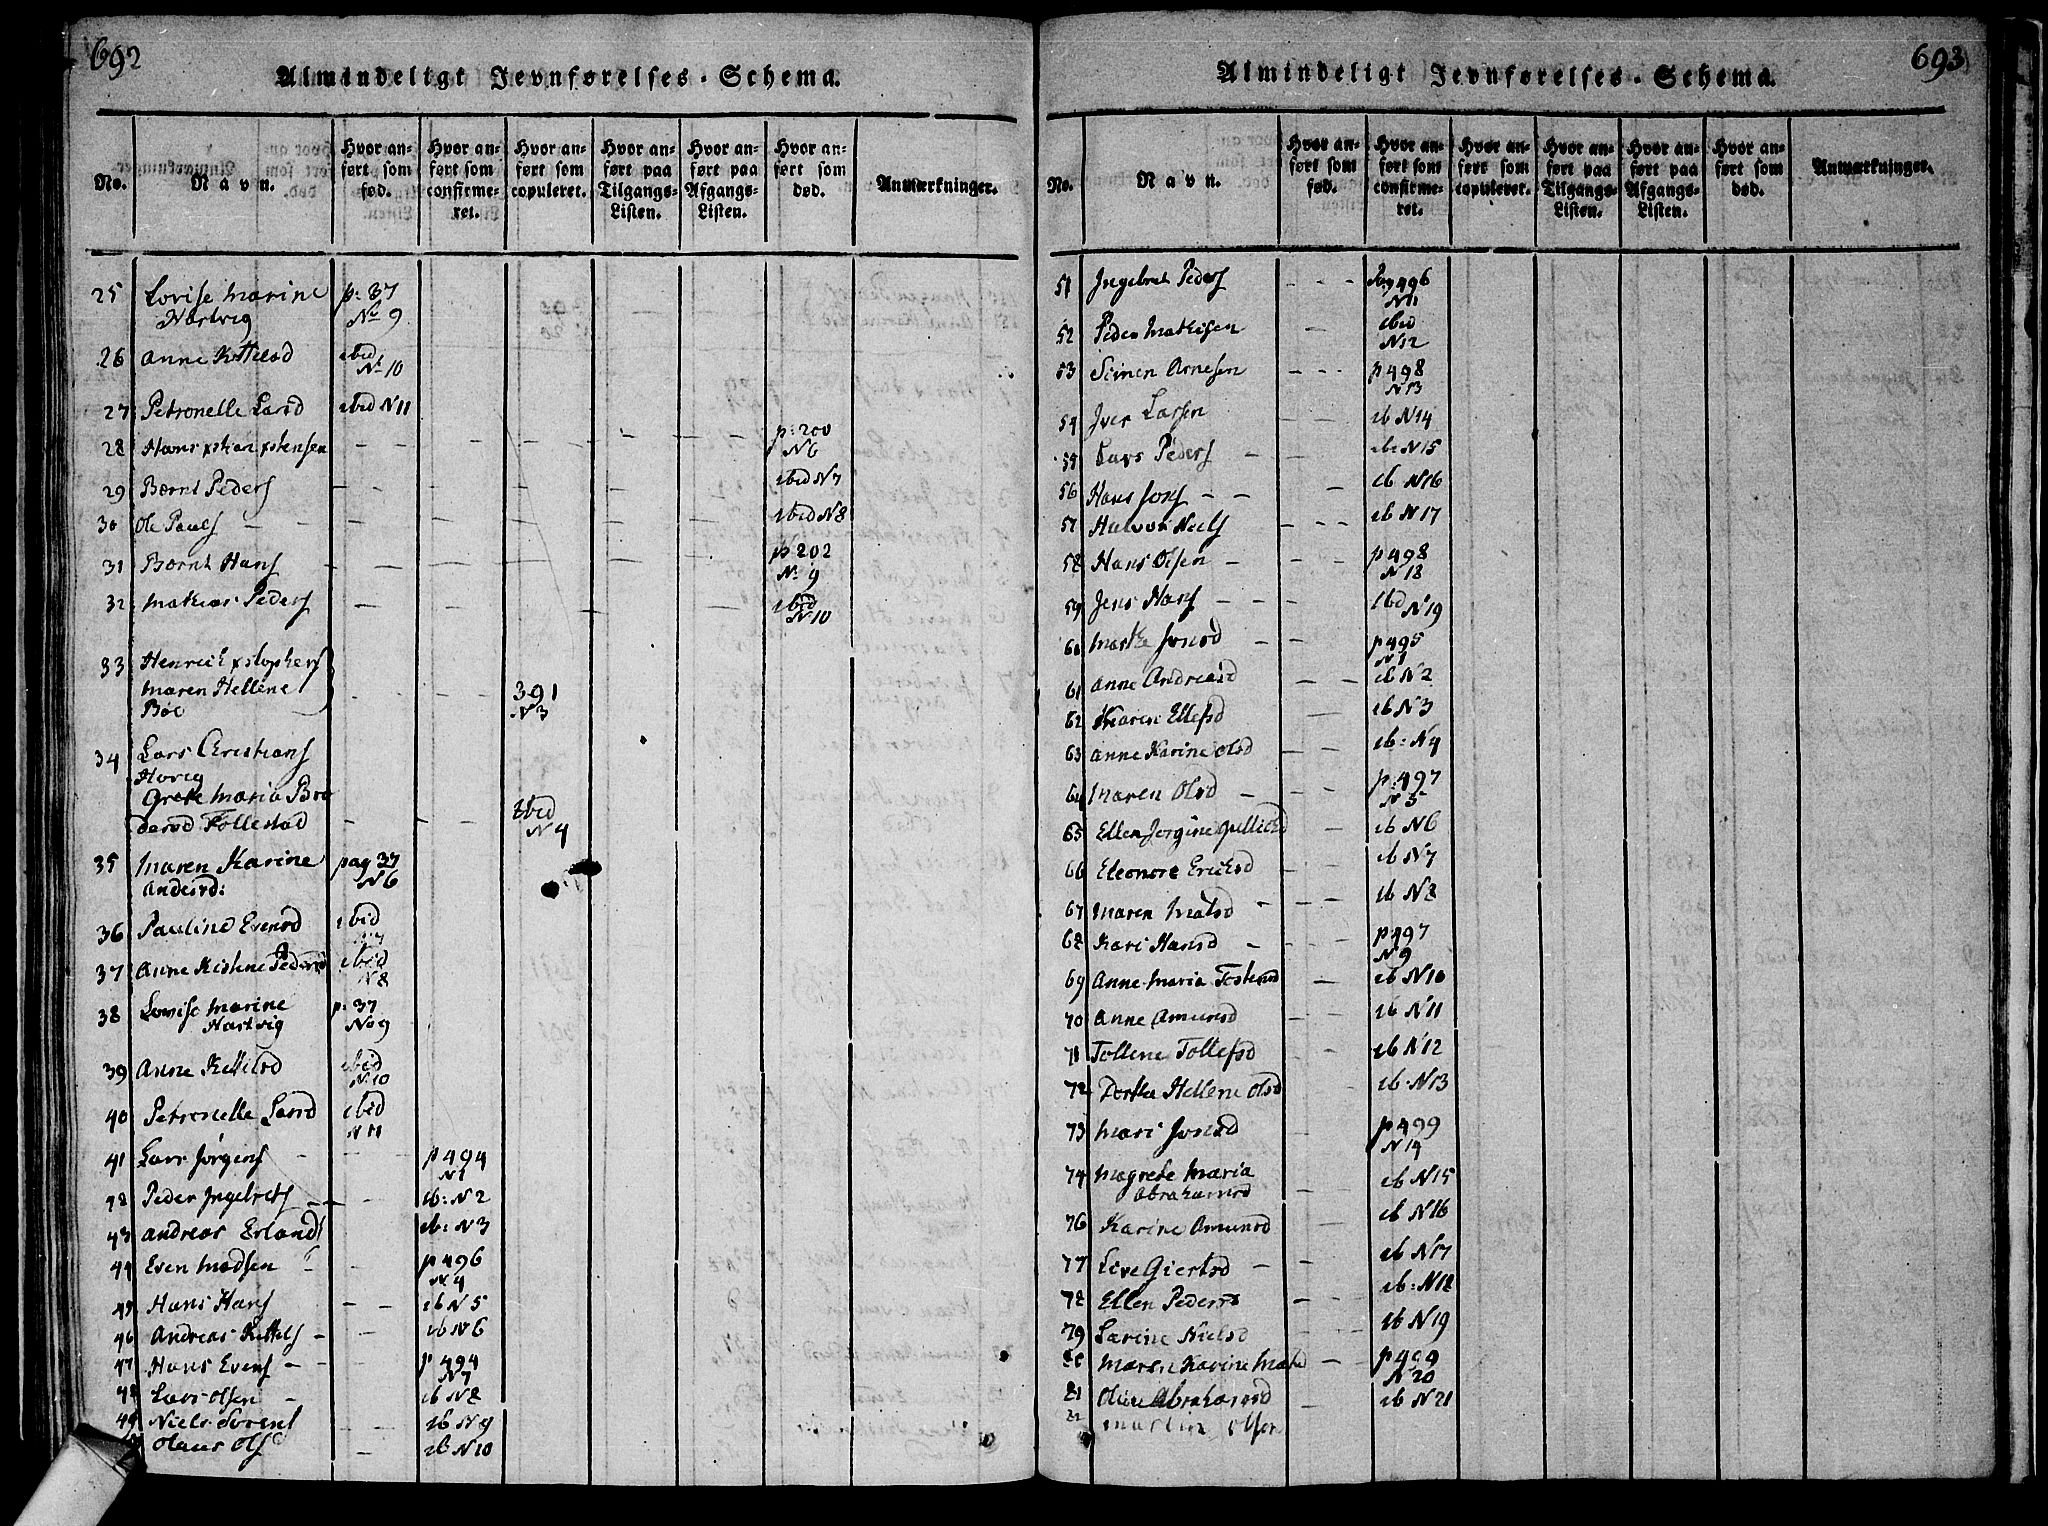 692
Almindeligt Jevnførelses-Schema.
No.
Navn.
Hvor an-
ført som
fød.
Hvor an-
ført som
confirme-
ret.
Hvor an-
ført som
copuleret.
Hvor an-
ført paa
Tilgangs-
Listen.
Hvor an-
ført paa
Afgangs-
Listen.
Hvor an-
ført som
død.
Anmærkninger.
25 Lovise Marine p: 37
Hartvig No 9
26 Anne Kittelsd ibid
No 10
27 Petronelle Larsd ibid N 11
28 Hans xstian xstensen - - - - - p: 200
N 6
29 Bernt Peders - - - - ibid N 7
30 Ole Pauls - - - - ibid N 8
31 Bernt Hans - - - - - p 202
No 9
32 Mathias Peders - - - - ibid
No 10
33 Henrich xstophers
Maren Hellene - - 391
Böe N 3
34 Lars Christians
Hovig
Grete Maria Bro
dersd Follestad - - ibid
N 4
35 Maren Karine pag 37
Andersd: N 6
36 Pauline Evensd ibid
N 7
37 Anne Kistine Pedersd ibid
N 8
38 Lovise Marine p: 37
Hartvig No 9
39 Anne Kettilsd ibid
No 10
40 Petronelle Larsd ibid
N 11
41 Lars Jørgens - - p 494
N 1
42 Peder Ingebrets - - ib: N 2
43 Andreas Erlands ib: N 3
44 Even Madsen - - p 496
N 4
45 Hans Hans - - ib N 5
46 Andreas Kittels - - ib N 6
47 Hans Evens - - p 494
N 7
48 Lars Olsen - ib N 8
49 Niels Sørens - - ib N 9
Olaus Ols - ib N 10
693
Almindeligt Jevnførelses-Schema.
No.
Navn.
Hvor an-
ført som
fød.
Hvor an-
ført som
confirme-
ret.
Hvor an-
ført som
copuleret.
Hvor an-
ført paa
Tilgangs-
Listen.
Hvor an-
ført paa
Afgangs-
Listen.
Hvor an-
ført som
død.
Anmærkninger.
51 Ingebret Peders - - - Pag 496
N 11
52 Peder Mathisen ibid
N 12
53 Simen Arnesen - - - p 498
N 13
54 Iver Larsen ib N 14
55 Lars Peders - - ib N 15
56 Hans Jons - - - ib N 16
57 Halvor Niels - - - ib N 17
58 Hans Olsen - - p 498
N 18
59 Jens Hans - - - ibd N 19
60 Marthe Jonsd - - p 495
N 1
61 Anne Andreasd - - ib N 2
62 Maren Ellefsd - ib N 3
63 Anne Karine Olsd - - ib: N 4
64 Maren Olsd - - - p: 497
N 5
65 Ellen Jørgine - ib N 6
66 Eleonore Ericksd - - ib N 7
67 Maren Matsd - - - ib N 8
68 Kari Hansd - - - p 497
N 9
69 Anne Maria Tostensd - ib N 10
70 Anne Amundsd - - ib N 11
71 Tollene Tollefsd - - ib N 12
72 Dorthe Hellene Olsd - ib N 13
73 Mari Jonsd - p 499
N 14
74 Magrete Maria ib N 15
Abrahamsd -
76 Karine Amundsd - ib N 16
77 Live Giertsd - - ib N 17
78 Ellen Pedersd - - ib: N 18
79 Larine Nielsd - - ib N 19
80 Maren Karine Matsd - p 499
N 20
81 Oline Abrahamsd - ib N 21
82 Olsen